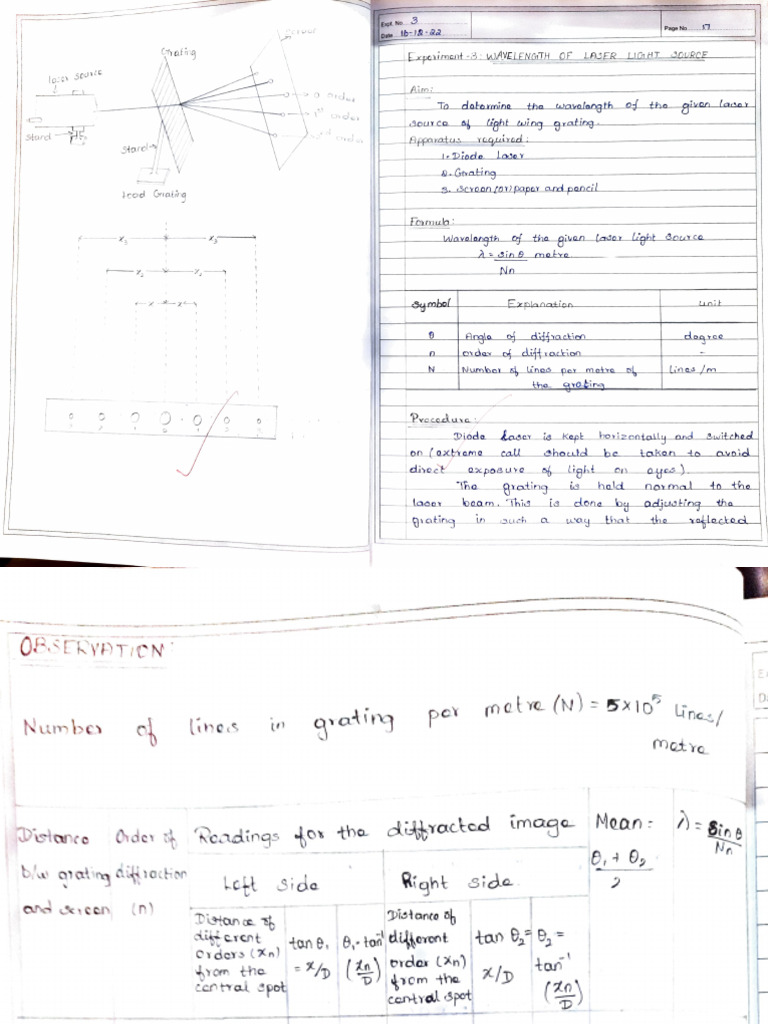 Grating
laser source
Stand
order
1st order
order
Stand
Lead Grating
x₃ x₃
x₂ x₂
x x
Expt. No. 3
Date 16-12-22
Page No. 17
Experiment-3: WAVELENGTH OF LASER LIGHT SOURCE
Aim:
To determine the wavelength of the given laser
source of light wing grating.
Apparatus required:
1. Diode Laser
2. Grating
3. Screen (or) paper and pencil
Formula:
Wavelength of the given laser light source
λ = sin θ metre
Nn
Symbol Explanation unit
θ Angle of diffraction degree
n order of diffraction -
N Number of lines per metre of lines/m
the grating
Procedure:
Diode Laser is kept horizontally and switched
on (extreme call should be taken to avoid
direct exposure of light on eyes).
The grating is held normal to the
laser beam. This is done by adjusting the
grating in such a way that the reflected
OBSERVATION:
Number of lines in grating per metre (N) = 5×10⁵ lines/
metre
Distance Order of Readings for the diffracted image Mean: λ = Sin θ
b/w grating diffraction Left side Right side θ₁ + θ₂ Nn
and screen (n) 2
Distance of
different
orders (xn)
from the
central spot
tan θ₁
= x/D
θ₁ = tan⁻¹
(xn/D)
Distance of
different
order (xn)
from the
central spot
tan θ₂ =
x/D
θ₂ =
tan⁻¹
(xn/D)